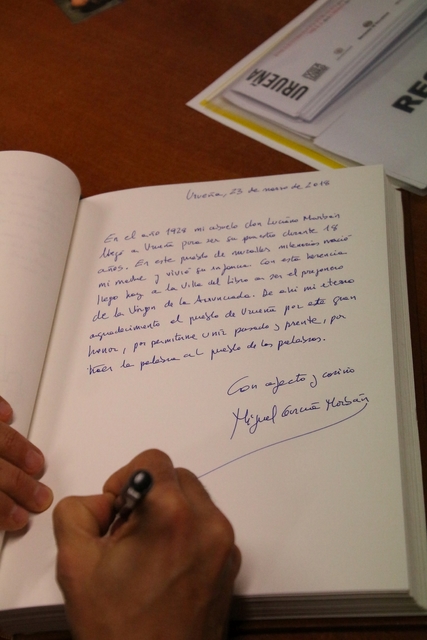 URUEÑA
Urueña, 23 de marzo de 2018
En el año 1928 mi abuelo don Luciano Morbán
llegó a Urueña para ser su practi durante 18
años. En este pueblo de murallas milenarias nació
mi madre y vivió su infancia. Con esta herencia
llego hoy a la Villa del Libro a ser el pregonero
de la Virgen de la Anunciada. De ahí mi eterno
agradecimiento al pueblo de Urueña por este gran
honor, por permitirme unir pasado y presente, por
traer la palabra al pueblo de las palabras.
Con afecto y cariño
Miguel García Morbán